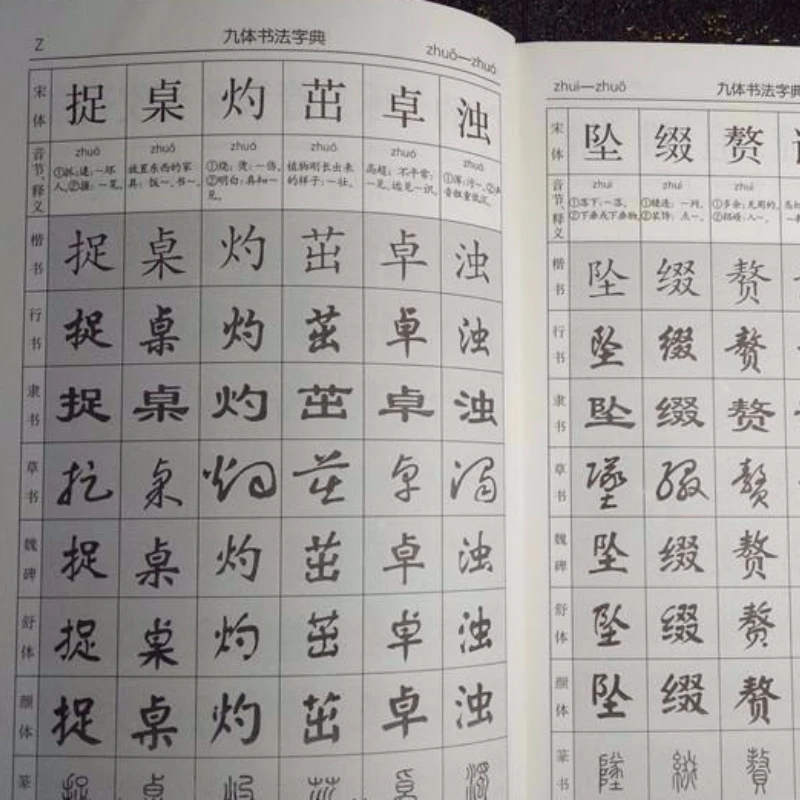 Z 九体书法字典 zhuō—zhuó
宋体 捉 桌 灼 茁 卓 浊
音节、释义 zhuō zhuō zhuó zhuó zhuó zhuó
①抓;逮:一坏人。②握:一笔。 放置东西的家具:饭一。书一。 ①烧;烫:一伤。②明白:真知一见。 植物刚长出来的样子:一壮。 高超;不平常:一见。远见一识。 ①浑:污一。②
楷书 捉 桌 灼 茁 卓 浊
行书 捉 桌 灼 茁 卓 浊
隶书 捉 桌 灼 茁 卓 浊
草书 捉 桌 灼 茁 卓 浊
魏碑 捉 桌 灼 茁 卓 浊
舒体 捉 桌 灼 茁 卓 浊
颜体 捉 桌 灼 茁 卓 浊
篆 捉 桌 灼 茁 卓 濁
zhui—zhuō 九体书法字典
宋体 坠 缀 赘
音节、释义 zhui zhui zhui
①落下:一落。②下垂或下垂物。 ②装饰:点一。 ①多余;无用的。
楷书 坠 缀 赘
行书 坠 缀 赘
隶书 坠 缀 赘
草书 墜 缀 贅
魏碑 坠 缀 赘
舒体 坠 缀 赘
颜体 坠 缀 赘
篆书 墜 綴 贅